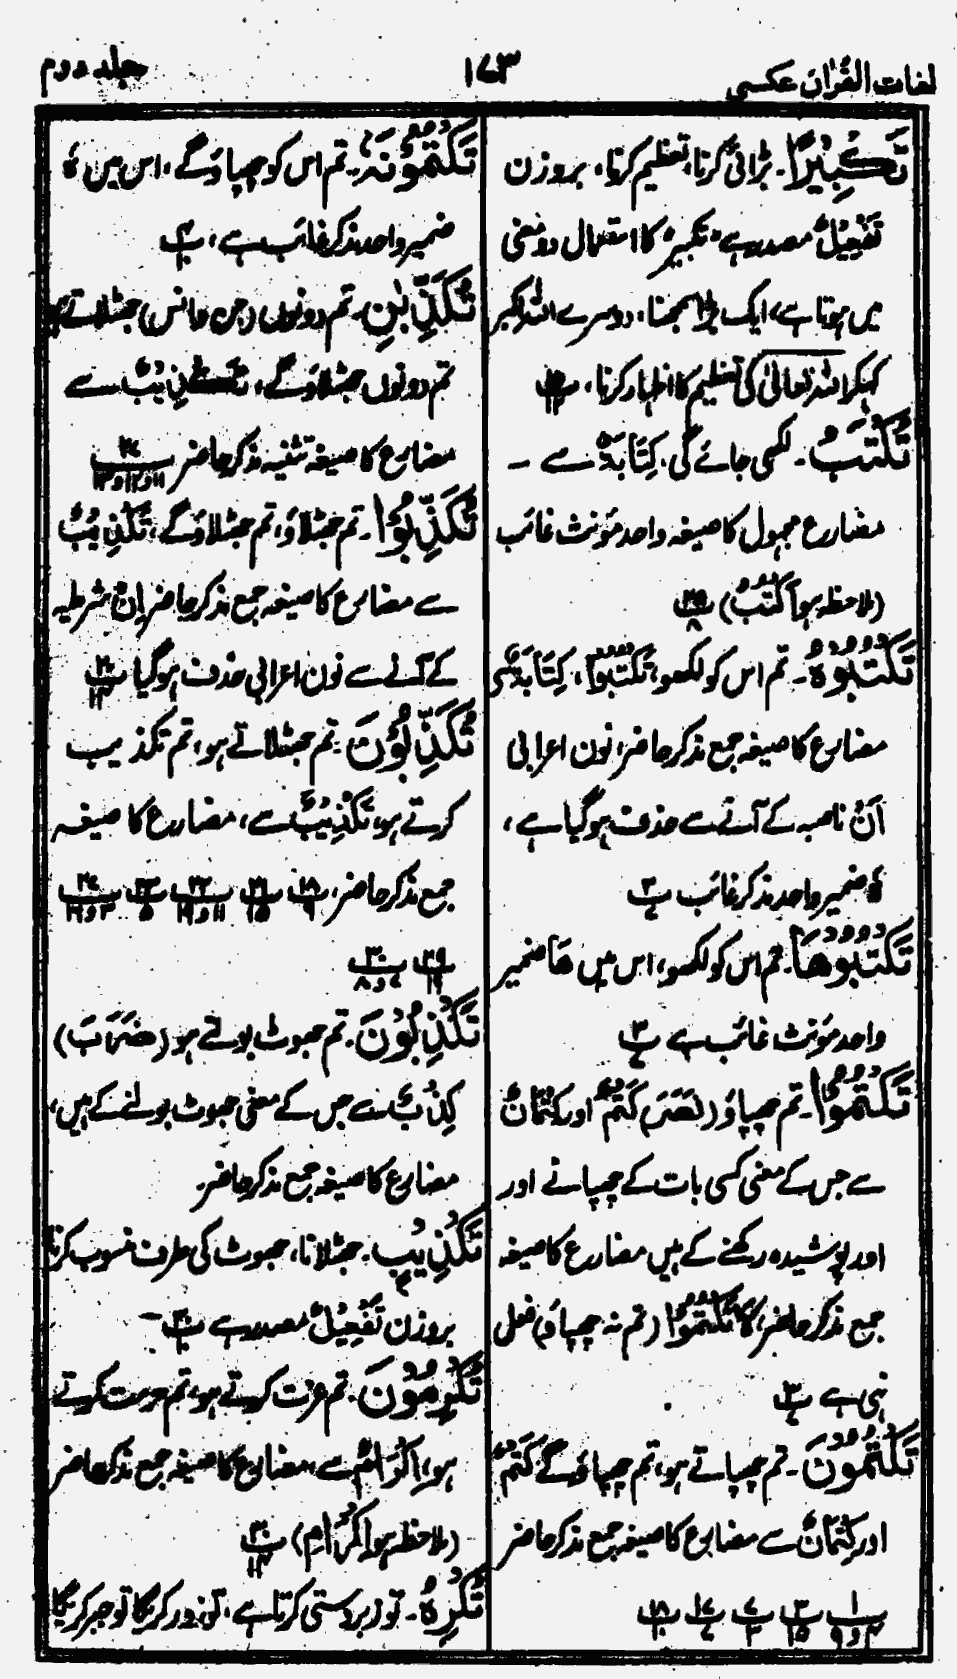 لغات القرآن عکسی
۱۷۳
جلد دوم
تَکْبِیْرًا۔ بڑائی کرنا، تعظیم کرنا، بروزن
تَفْعِیْلٌ مصدر ہے، تکبیر کا استعمال دو معنی
میں ہوتا ہے، ایک بڑا سمجھنا، دوسرے اللہ اکبر
کہکر اللہ تعالیٰ کی تعظیم کا اظہار کرنا،
تُکْتَبُ۔ لکھی جائے گی، کِتَابَةٌ سے ۔
مضارع مجہول کا صیغہ واحد مؤنث غائب
(ملاحظہ ہو اَکْتُبُ) پ
تَکْتُبُوْہُ۔ تم اس کو لکھو، تَکْتُبُوْا، کِتَابَةٌ سے
مضارع کا صیغہ جمع مذکر حاضر، نون اعرابی
اَنْ ناصبہ کے آنے سے حذف ہو گیا ہے،
ہٗ ضمیر واحد مذکر غائب پ
تَکْتُبُوْھَا۔ تم اس کو لکھو، اس میں ھَا ضمیر
واحد مؤنث غائب ہے پ
تَکْتُمُوْا۔ تم چھپاؤ (نَصَرَ) کَتْمٌ اور کِتْمَانٌ
سے جس کے معنی کسی بات کے چھپانے اور
اور پوشیدہ رکھنے کے ہیں مضارع کا صیغہ
جمع مذکر حاضر، لَا تَکْتُمُوْا (تم نہ چھپاؤ) فعل
نہی ہے پ
تَکْتُمُوْنَ۔ تم چھپاتے ہو، تم چھپاؤ گے کَتْمٌ
اور کِتْمَانٌ سے مضارع کا صیغہ جمع مذکر حاضر
تَکْتُمُوْنَہٗ۔ تم اس کو چھپاؤ گے، اس میں ہٗ
ضمیر واحد مذکر غائب ہے، پ
تُکَذِّبٰنِ۔ تم دونوں (جن و انس) جھٹلاتے ہو
تم دونوں جھٹلاؤ گے، تَکْذِیْبٌ سے
مضارع کا صیغہ تثنیہ مذکر حاضر
تُکَذِّبُوْا۔ تم جھٹلاؤ، تم جھٹلاؤ گے، تَکْذِیْبٌ
سے مضارع کا صیغہ جمع مذکر حاضر اِنْ شرطیہ
کے آنے سے نون اعرابی حذف ہو گیا پ
تُکَذِّبُوْنَ۔ تم جھٹلاتے ہو، تم تکذیب
کرتے ہو، تَکْذِیْبٌ سے، مضارع کا صیغہ
جمع مذکر حاضر،
تَکْذِبُوْنَ۔ تم جھوٹ بولتے ہو (ضَرَبَ)
کِذْبٌ سے جس کے معنی جھوٹ بولنے کے ہیں،
مضارع کا صیغہ جمع مذکر حاضر۔
تَکْذِیْبٍ۔ جھٹلانا، جھوٹ کی طرف منسوب کرنا
بروزن تَفْعِیْلٌ مصدر ہے پ ۔
تُکْرِمُوْنَ۔ تم عزت کرتے ہو، تم حرمت کرتے
ہو، اِکْرَامٌ سے، مضارع کا صیغہ جمع مذکر حاضر
(ملاحظہ ہو اِکْرَامِ) پ
تُکْرِہُ۔ تو زبردستی کرتا ہے، تو زور کریگا تو جبر کریگا